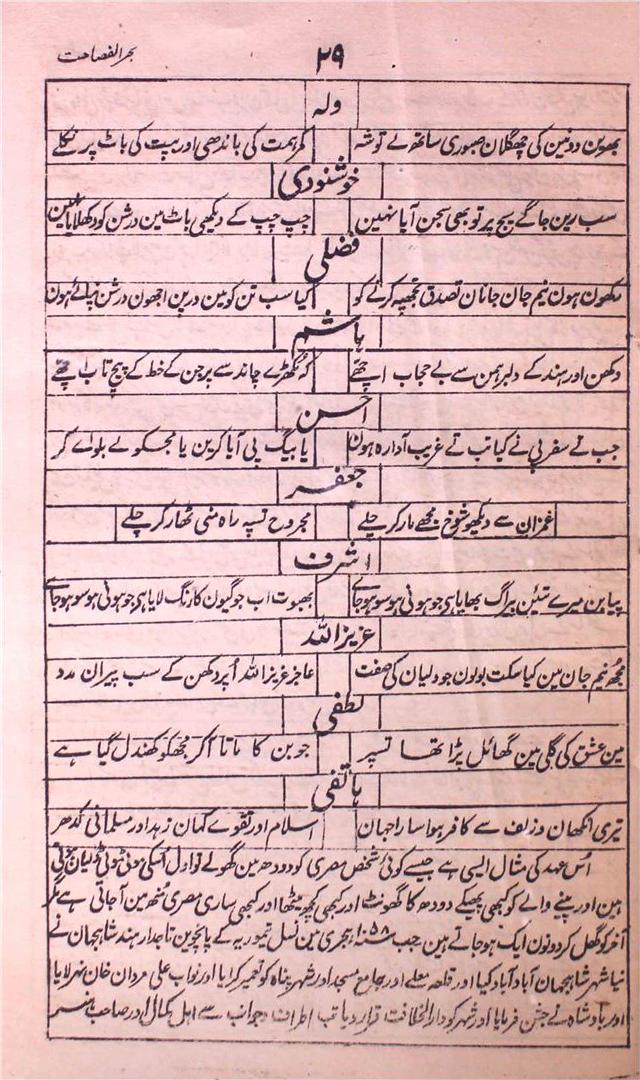 ۲۹
بحر الفصاحت
ولہ
بھوین دونین کی چھگلان صبوری ساتھ لے توشہ
کمر ہمت کی باندھی اور بپت کی باٹ پر نکلے
خوشنودی
سب رین جاگے سیج پر تو بھی سجن آیا نہین
چپ چپ کے دیکھی باٹ مین درشن کو دکھلایا نہین
فضلی
رکھون ہون نیم جان جانان تصدق تجھپہ کرنے کو
کیا سب تن کو مین درپن اجھون درشن نپائے ہون
ہاشم
دکھن اور ہند کے دلبر ہمن سے بے حجاب اچھے
کہ مکھڑے چاند سے پر جن کے خط کے پیچ تاب اچھے
احسن
جب نے سفر پی نے کیا تب تے غریب آوارہ ہون
یا بیگ پی آیا کرین یا مجسکو لے بلوائے کر
جعفر
غمزان سے دیکھو شوخ مجھے مار کر چلے
مجروح تسپہ راہ منی ٹھار کر چلے
اشرف
پیا بن میرے تئین بیراگ بھایا ہی جو ہونی ہو سو ہو جاے
بھبوت اب جوگیون کا رنگ لایا ہی جو ہونی ہو سو ہو جاے
عزیز اللہ
مجھ نیم جان مین کیا سکت بولون جو ولیان کی صفت
عاجز عزیز اللہ اُپر دکھن کے سب پیران مدد
لطفی
مین عشق کی گلی مین گھائل پڑا تھا تسپر
جوبن کا ماتا آکر مجھکو کھندل گیا ہے
ہاتفی
تیری انکھان و زلف سے کافر ہوا سارا جہان
اسلام اور تقوے کہان زہد اور مسلمانی کدھر
اُس عہد کی مثال ایسی ہے جیسے کوئی شخص مصری کو دودھ مین گھولے تو اول اُسکی موٹی موٹی ڈلیان ہوتی
ہین اور پینے والے کو کبھی پھیکے دودھ کا گھونٹ اور کبھی کچھ میٹھا اور کبھی ساری مصری منھ مین آجاتی ہے مگر
آخر کو گھل کر دونون ایک ہو جاتے ہین جب ۱۰۵۸ ہجری مین نسل تیموریہ کے پانچوین تاجدار ہند شاہجہان نے
نیا شہر شاہجہان آباد آباد کیا اور قلعہ معلے اور جامع مسجد اور شہر پناہ کو تعمیر کرایا اور نواب علی مردان خان نہر لایا
اور بادشاہ نے جشن فرمایا اور شہر کو دار الخلافت قرار دیا تب اطراف و جوانب سے اہل کمال اور صاحب ہنر